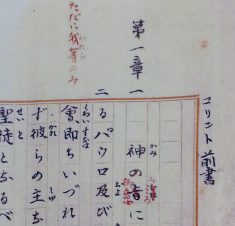 コリント前書
第一章 一 神の旨に
二 るパウロ及び
ただに我等のみ
會、即ちいづれ
ず彼らの主な
聖徒となるべ